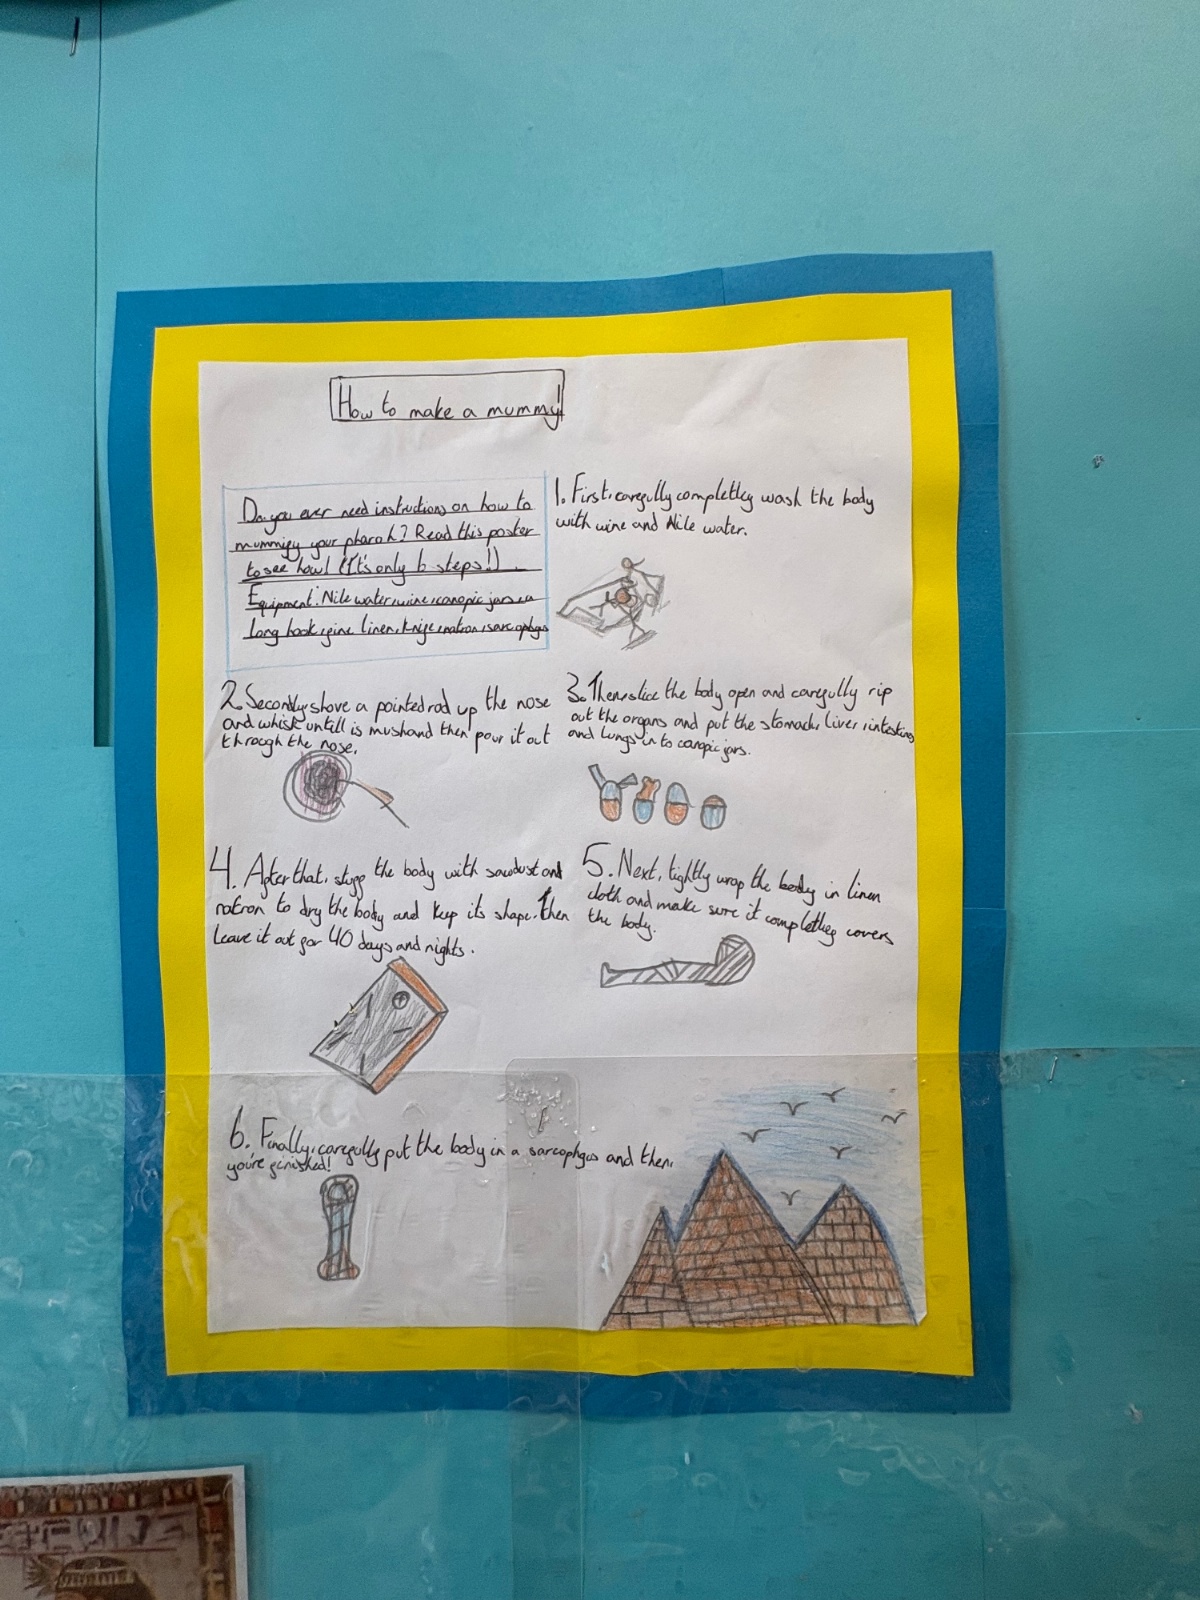 How to make a mummy!
Do you ever need instructions on how to
mummify your pharoh? Read this poster
to see how! (It's only 6 steps!)
Equipment: Nile water, wine, canopic jars, a
long hook, fine linen, knife, natron, sarcophgus
1. First, carefully completley wash the body
with wine and Nile water.
2. Secondly, shove a pointed rod up the nose
and whisk untill is mush and then pour it out
through the nose.
3. Then, slice the body open and carefully rip
out the organs and put the stomach, liver, intestins
and lungs in to canopic jars.
4. After that, stuff the body with sawdust and
natron to dry the body and keep its shape. Then
leave it out for 40 days and nights.
5. Next, tightly wrap the body in linen
cloth and make sure it completley covers
the body.
6. Finally, carefully put the body in a sarcophgus and then,
you're finished!